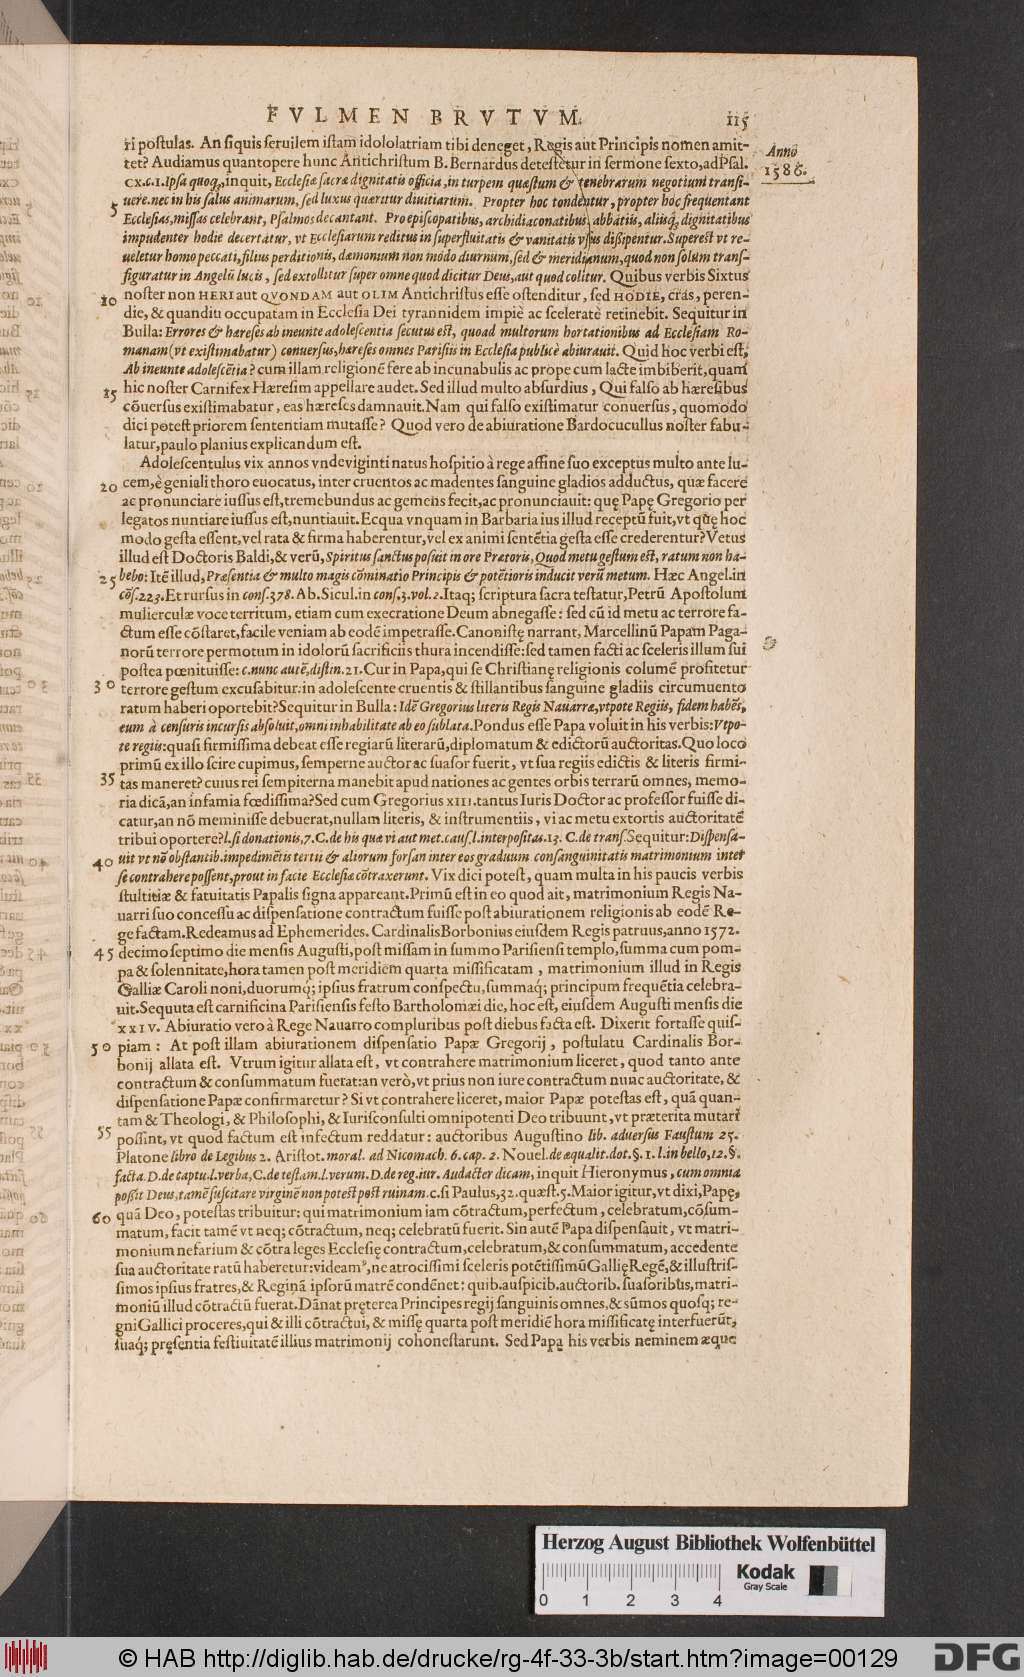 FVLMEN BRVTVM. 115
ri postulas. An siquis seruilem istam idololatriam tibi deneget, Regis aut Principis nomen amit-
tet? Audiamus quantopere hunc Antichristum B. Bernardus detestetur in sermone sexto, ad Psal.
Anno
1586.
CX.c.1. Ipsa quoq;, inquit, Ecclesiæ sacræ dignitatis officia, in turpem quæstum & tenebrarum negotium transi-
uere. nec in his salus animarum, sed luxus quæritur diuitiarum. Propter hoc tondentur, propter hoc frequentant
5 Ecclesias, missas celebrant, Psalmos decantant. Pro episcopatibus, archidiaconatibus, abbatiis, aliisq; dignitatibus
impudenter hodie decertatur, vt Ecclesiarum reditus in superfluitatis & vanitatis vsus dissipentur. Superest vt re-
ueletur homo peccati, filius perditionis, dæmonium non modo diurnum, sed & meridianum, quod non solum trans-
figuratur in Angelū lucis, sed extollitur super omne quod dicitur Deus, aut quod colitur. Quibus verbis Sixtus
10 noster non HERI aut QVONDAM aut OLIM Antichristus esse ostenditur, sed HODIE, cras, peren-
die, & quandiu occupatam in Ecclesia Dei tyrannidem impiè ac sceleratè retinebit. Sequitur in
Bulla: Errores & hæreses ab ineunte adolescentia secutus est, quoad multorum hortationibus ad Ecclesiam Ro-
manam (vt existimabatur) conuersus, hæreses omnes Parisiis in Ecclesia publicè abiurauit. Quid hoc verbi est,
Ab ineunte adolescētia? cum illam religionē fere ab incunabulis ac prope cum lacte imbiberit, quam
15 hic noster Carnifex Hæresim appellare audet. Sed illud multo absurdius, Qui falso ab hæresibus
cōuersus existimabatur, eas hæreses damnauit. Nam qui falso existimatur conuersus, quomodo
dici potest priorem sententiam mutasse? Quod vero de abiuratione Bardocucullus noster fabu-
latur, paulo planius explicandum est.
Adolescentulus vix annos vndeviginti natus hospitio à rege affine suo exceptus multo ante lu-
20 cem, è geniali thoro euocatus, inter cruentos ac madentes sanguine gladios adductus, quæ facere
ac pronunciare iussus est, tremebundus ac gemens fecit, ac pronunciauit: quę Papę Gregorio per
legatos nuntiare iussus est, nuntiauit. Ecqua vnquam in Barbaria ius illud receptū fuit, vt quę hoc
modo gesta essent, vel rata & firma haberentur, vel ex animi sentētia gesta esse crederentur? Vetus
illud est Doctoris Baldi, & verū, Spiritus sanctus posuit in ore Prætoris, Quod metu gestum est, ratum non ha-
25 bebo: Itē illud, Præsentia & multo magis cōminatio Principis & potētioris inducit verū metum. Hæc Angel. in
cōs. 223. Et rursus in cons. 378. Ab. Sicul. in cons. 3. vol. 2. Itaq; scriptura sacra testatur, Petrū Apostolum
mulierculæ voce territum, etiam cum execratione Deum abnegasse: sed cū id metu ac terrore fa-
ctum esse cōstaret, facile veniam ab eodē impetrasse. Canonistę narrant, Marcellinū Papam Paga-
norū terrore permotum in idolorū sacrificiis thura incendisse: sed tamen facti ac sceleris illum sui
postea pœnituisse: c. nunc autē, distin. 21. Cur in Papa, qui se Christianę religionis columē profitetur
30 terrore gestum excusabitur: in adolescente cruentis & stillantibus sanguine gladiis circumuento
ratum haberi oportebit? Sequitur in Bulla: Idē Gregorius literis Regis Nauarræ, vtpote Regiis, fidem habēs,
eum à censuris incursis absoluit, omni inhabilitate ab eo sublata. Pondus esse Papa voluit in his verbis: Vtpo-
te regiis: quasi firmissima debeat esse regiarū literarū, diplomatum & edictorū auctoritas. Quo loco
primū ex illo scire cupimus, semperne auctor ac suasor fuerit, vt sua regiis edictis & literis firmi-
35 tas maneret? cuius rei sempiterna manebit apud nationes ac gentes orbis terrarū omnes, memo-
ria dicā, an infamia fœdissima? Sed cum Gregorius XIII. tantus Iuris Doctor ac professor fuisse di-
catur, an nō meminisse debuerat, nullam literis, & instrumentiis, vi ac metu extortis auctoritatē
tribui oportere? l. si donationis, 7. C. de his quæ vi aut met. caus. l. interpositas. 13. C. de trans. Sequitur: Dispensa-
40 uit vt nō obstantib. impedimētis tertii & aliorum forsan inter eos graduum consanguinitatis matrimonium inter
se contrahere possent, prout in facie Ecclesiæ cōtraxerunt. Vix dici potest, quam multa in his paucis verbis
stultitiæ & fatuitatis Papalis signa appareant. Primū est in eo quod ait, matrimonium Regis Na-
uarri suo concessu ac dispensatione contractum fuisse post abiurationem religionis ab eodē Re-
ge factam. Redeamus ad Ephemerides. Cardinalis Borbonius eiusdem Regis patruus, anno 1572.
45 decimo septimo die mensis Augusti, post missam in summo Parisiensi templo, summa cum pom-
pa & solennitate, hora tamen post meridiem quarta missificatam, matrimonium illud in Regis
Galliæ Caroli noni, duorumq; ipsius fratrum conspectu, summaq; principum frequētia celebra-
uit. Sequuta est carnificina Parisiensis festo Bartholomæi die, hoc est, eiusdem Augusti mensis die
XXIV. Abiuratio vero à Rege Nauarro compluribus post diebus facta est. Dixerit fortasse quis-
50 piam: At post illam abiurationem dispensatio Papæ Gregorij, postulatu Cardinalis Bor-
bonij allata est. Vtrum igitur allata est, vt contrahere matrimonium liceret, quod tanto ante
contractum & consummatum fuerat: an verò, vt prius non iure contractum nunc auctoritate, &
dispensatione Papæ confirmaretur? Si vt contrahere liceret, maior Papæ potestas est, quā quan-
tam & Theologi, & Philosophi, & Iurisconsulti omnipotenti Deo tribuunt, vt præterita mutari
55 possint, vt quod factum est infectum reddatur: auctoribus Augustino lib. aduersus Faustum 25.
Platone libro de Legibus 2. Aristot. moral. ad Nicomach. 6. cap. 2. Nouel. de æqualit. dot. §. 1. l. in bello, 12. §.
facta. D. de captu. l. verba, C. de testam. l. verum. D. de reg. iur. Audacter dicam, inquit Hieronymus, cum omnia
possit Deus, tamē suscitare virginē non potest post ruinam. c. si Paulus, 32. quæst. 5. Maior igitur, vt dixi, Papę,
60 quā Deo, potestas tribuitur: qui matrimonium iam cōtractum, perfectum, celebratum, cōsum-
matum, facit tamē vt neq; cōtractum, neq; celebratū fuerit. Sin autē Papa dispensauit, vt matri-
monium nefarium & cōtra leges Ecclesię contractum, celebratum, & consummatum, accedente
sua auctoritate ratū haberetur: videam', ne atrocissimi sceleris potētissimū Gallię Regē, & illustris-
simos ipsius fratres, & Reginā ipsorū matrē condēnet: quib. auspicib. auctorib. suasoribus, matri-
moniū illud cōtractū fuerat. Dānat pręterea Principes regij sanguinis omnes, & sūmos quosq; re-
gni Gallici proceres, qui & illi cōtractui, & missę quarta post meridiē hora missificatę interfuerūt,
suaq; pręsentia festiuitatē illius matrimonij cohonestarunt. Sed Papa his verbis neminem æque
Herzog August Bibliothek Wolfenbüttel
Kodak
Gray Scale
0 1 2 3 4
© HAB http://diglib.hab.de/drucke/rg-4f-33-3b/start.htm?image=00129
DFG